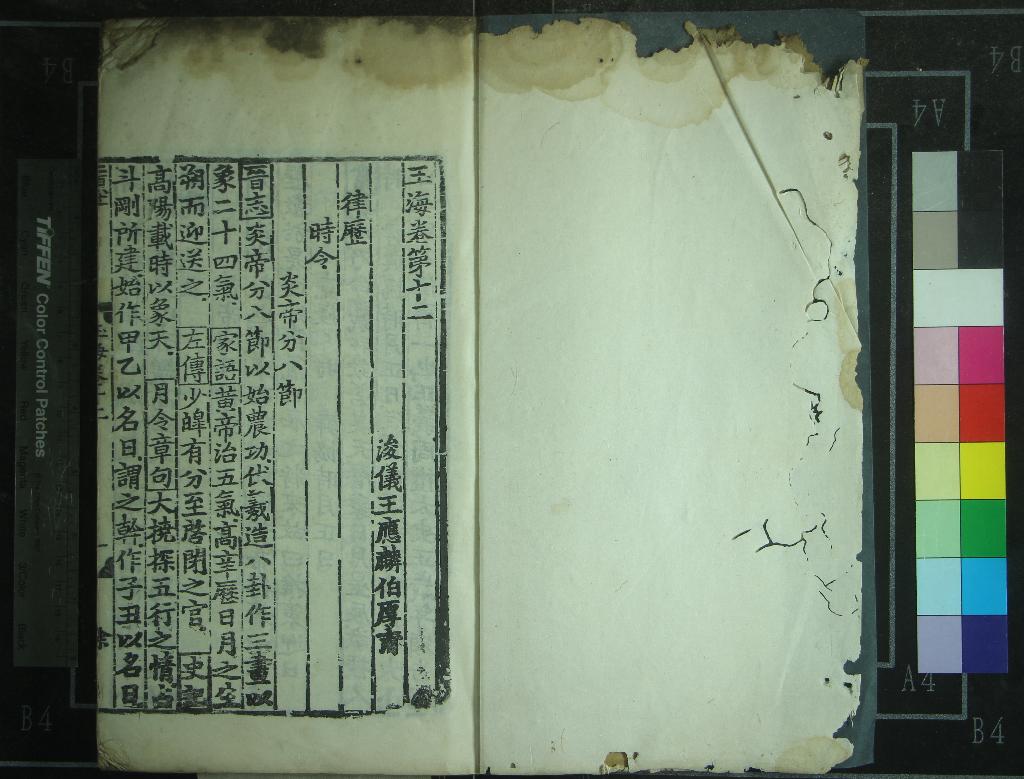 玉海卷第十二
浚儀王應麟伯厚甫
律歷
時令
炎帝分八節
晉志炎帝分八節以始農功伏羲造八卦作三畫以
象二十四氣 家語黃帝治五氣高辛歷日月之生
朔而迎送之 左傳少皥有分至啓閉之官 史記
高陽載時以象天 月令章句大撓探五行之情占
斗剛所建始作甲乙以名日謂之幹作子丑以名日
TIFFEN Color Control Patches
B4
A4
B4
A4
B4
B4